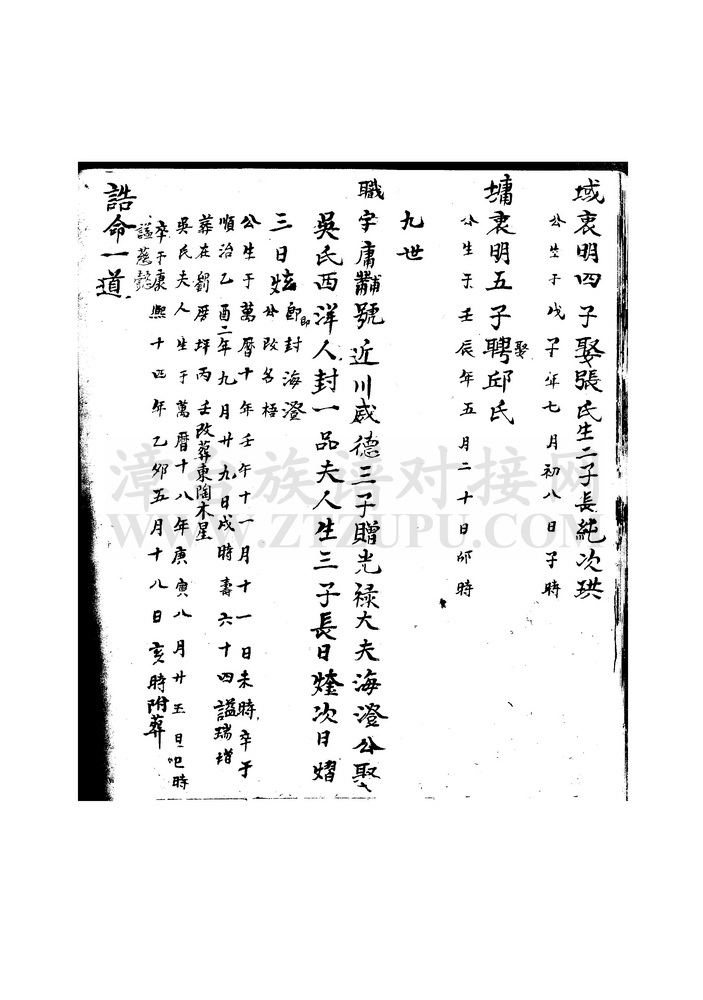 域衷明四子娶張氏生二子長純次珙
公生于戊子年七月初八日子時
墉衷明五子聘邱氏
娶
公生于壬辰年五月二十日卯時
九世
職字庸黼號近川威德三子贈光祿大夫海澄公娶
吳氏西洋人封一品夫人生三子長日燵次日熠
三日炫
即封海澄
公改名梧
公生于萬曆十年壬午十一月十一日未時卒于
順治乙酉二年九月廿九日戌時壽六十四謚瑞增
葬在 厝坪丙壬改葬東陶木星
吳氏夫人生于萬曆十八年庚寅八月廿五日巳時
卒于康熙十四年乙卯五月十八日亥時附葬
謚慈懿
誥命一道
漳台族谱对接网
WWW.ZTZUPU.COM